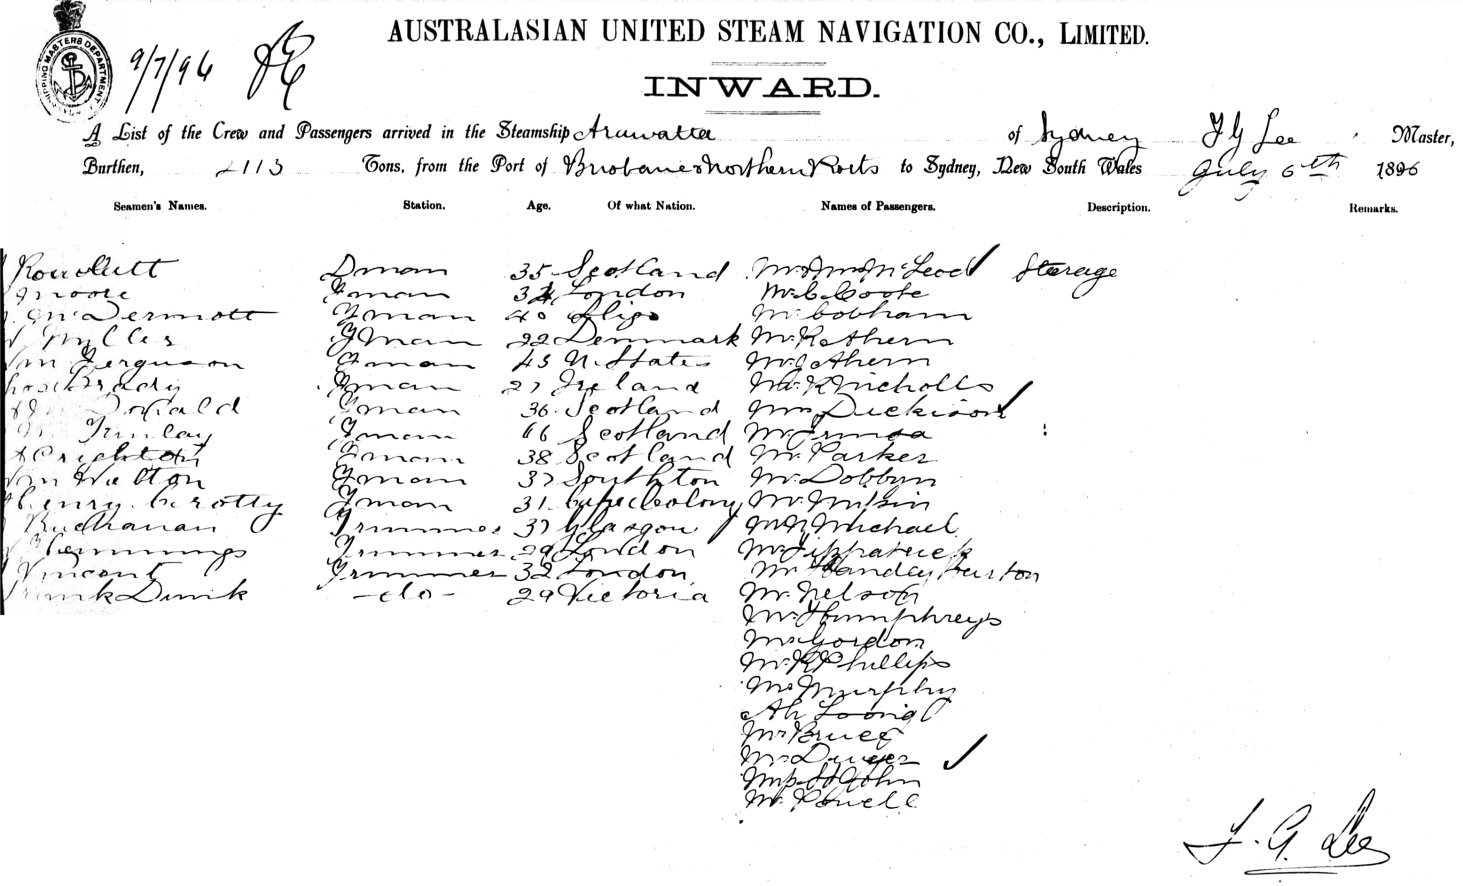 SHIPPING MASTERS DEPARTMENT
9/7/96
AUSTRALASIAN UNITED STEAM NAVIGATION CO., LIMITED.
INWARD.
A List of the Crew and Passengers arrived in the Steamship Arawatta of Sydney Lee Master,
Burthen, 2113 Tons, from the Port of Brisbane & Northern Ports to Sydney, New South Wales July 6th 1896
Seamen's Names. Station. Age. Of what Nation. Names of Passengers. Description. Remarks.
Dman 35 Scotland Mr & Mrs McLeod Sterage
Moore Fman London Mr C Coote
McDermott Fman 40 Sligo Mr Cobham
Fman 22 Denmark Mr R Ahern
Wm Ferguson Fman 45 U. States Mr J Ahern
Brady Fman 27 Ireland Mr R Nicholls
Donald Fman 36 Scotland Mrs Duckison
Finlay Fman 66 Scotland Mr
Crighton Fman 38 Scotland Mr Parker
Wm Welton Fman 37 Southton Mr Dobbyn
Henry Crotty Fman 31 Cape Colony Mr
Buchanan Trimmer 37 Glasgow Mr N Michael
Hemmings Trimmer 29 London Mr Fitzpatrick
Vincent Trimmer 32 London Mr
Frank Dunk -do- 29 Victoria Mr Nelson
Mr Humphreys
Mr Gordon
Mr R Phillips
Mr Murphy
Ah
Mr Bruce
Mr Dwyer
St John
Mr Powell
Lee